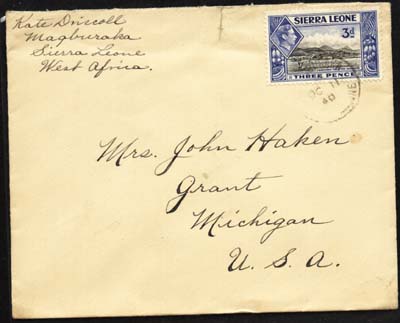 Kate Driscoll
Magburaka
Sierra Leone
West Africa.
SIERRA LEONE
3d
THREE PENCE
Mrs. John Haken
Grant
Michigan
U. S. A.